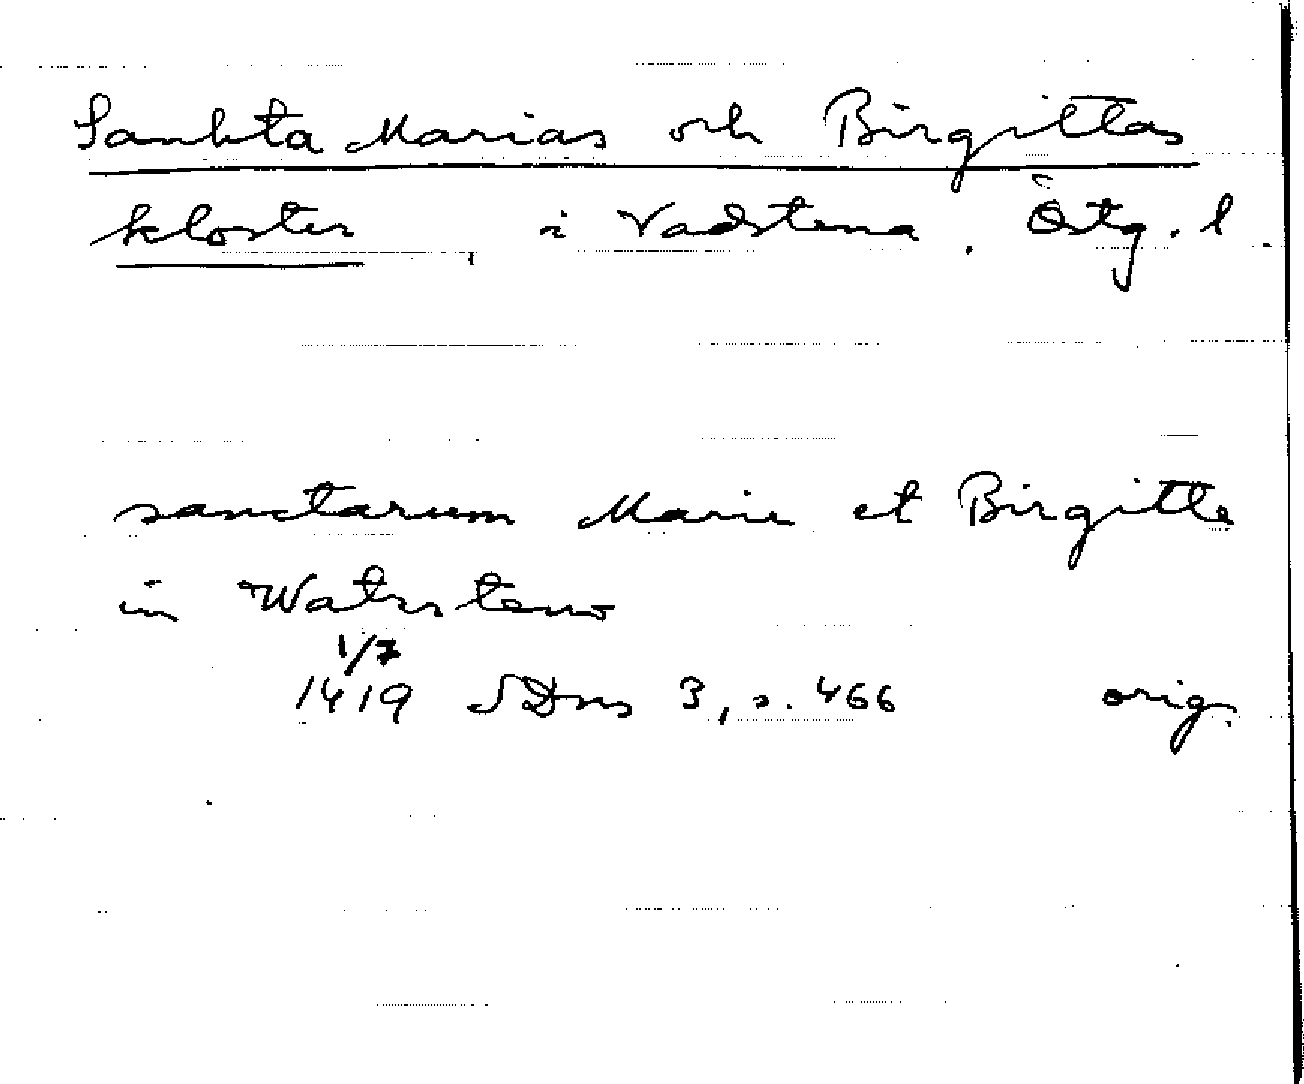 Sankta Marias och Birgittas
kloster i Vadstena. Östg. l
sanctarum Marie et Birgitte
in Watzsteno
1/7
1419 SDns 3, s. 466 orig.